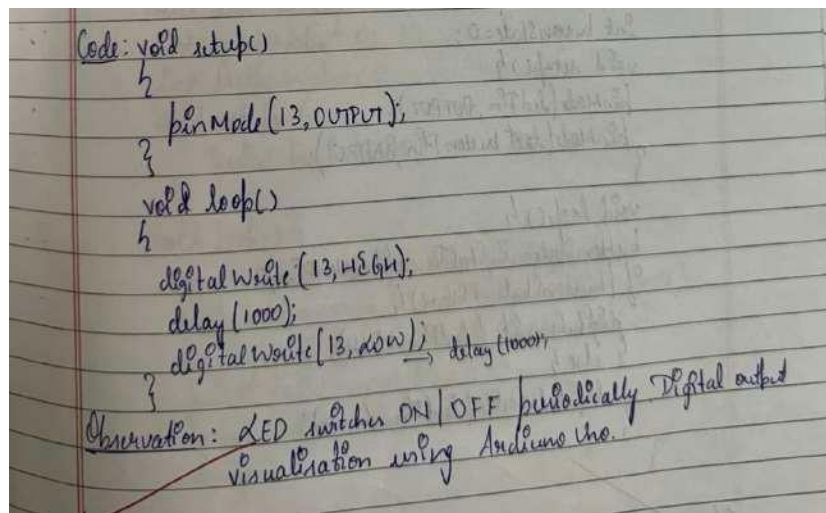 Code: void setup()
{
pinMode(13, OUTPUT);
}
void loop()
{
digitalWrite(13, HIGH);
delay(1000);
digitalWrite(13, LOW); → delay(1000);
}
Observation: LED switches ON/OFF periodically Digital output
visualisation using Arduino Uno.